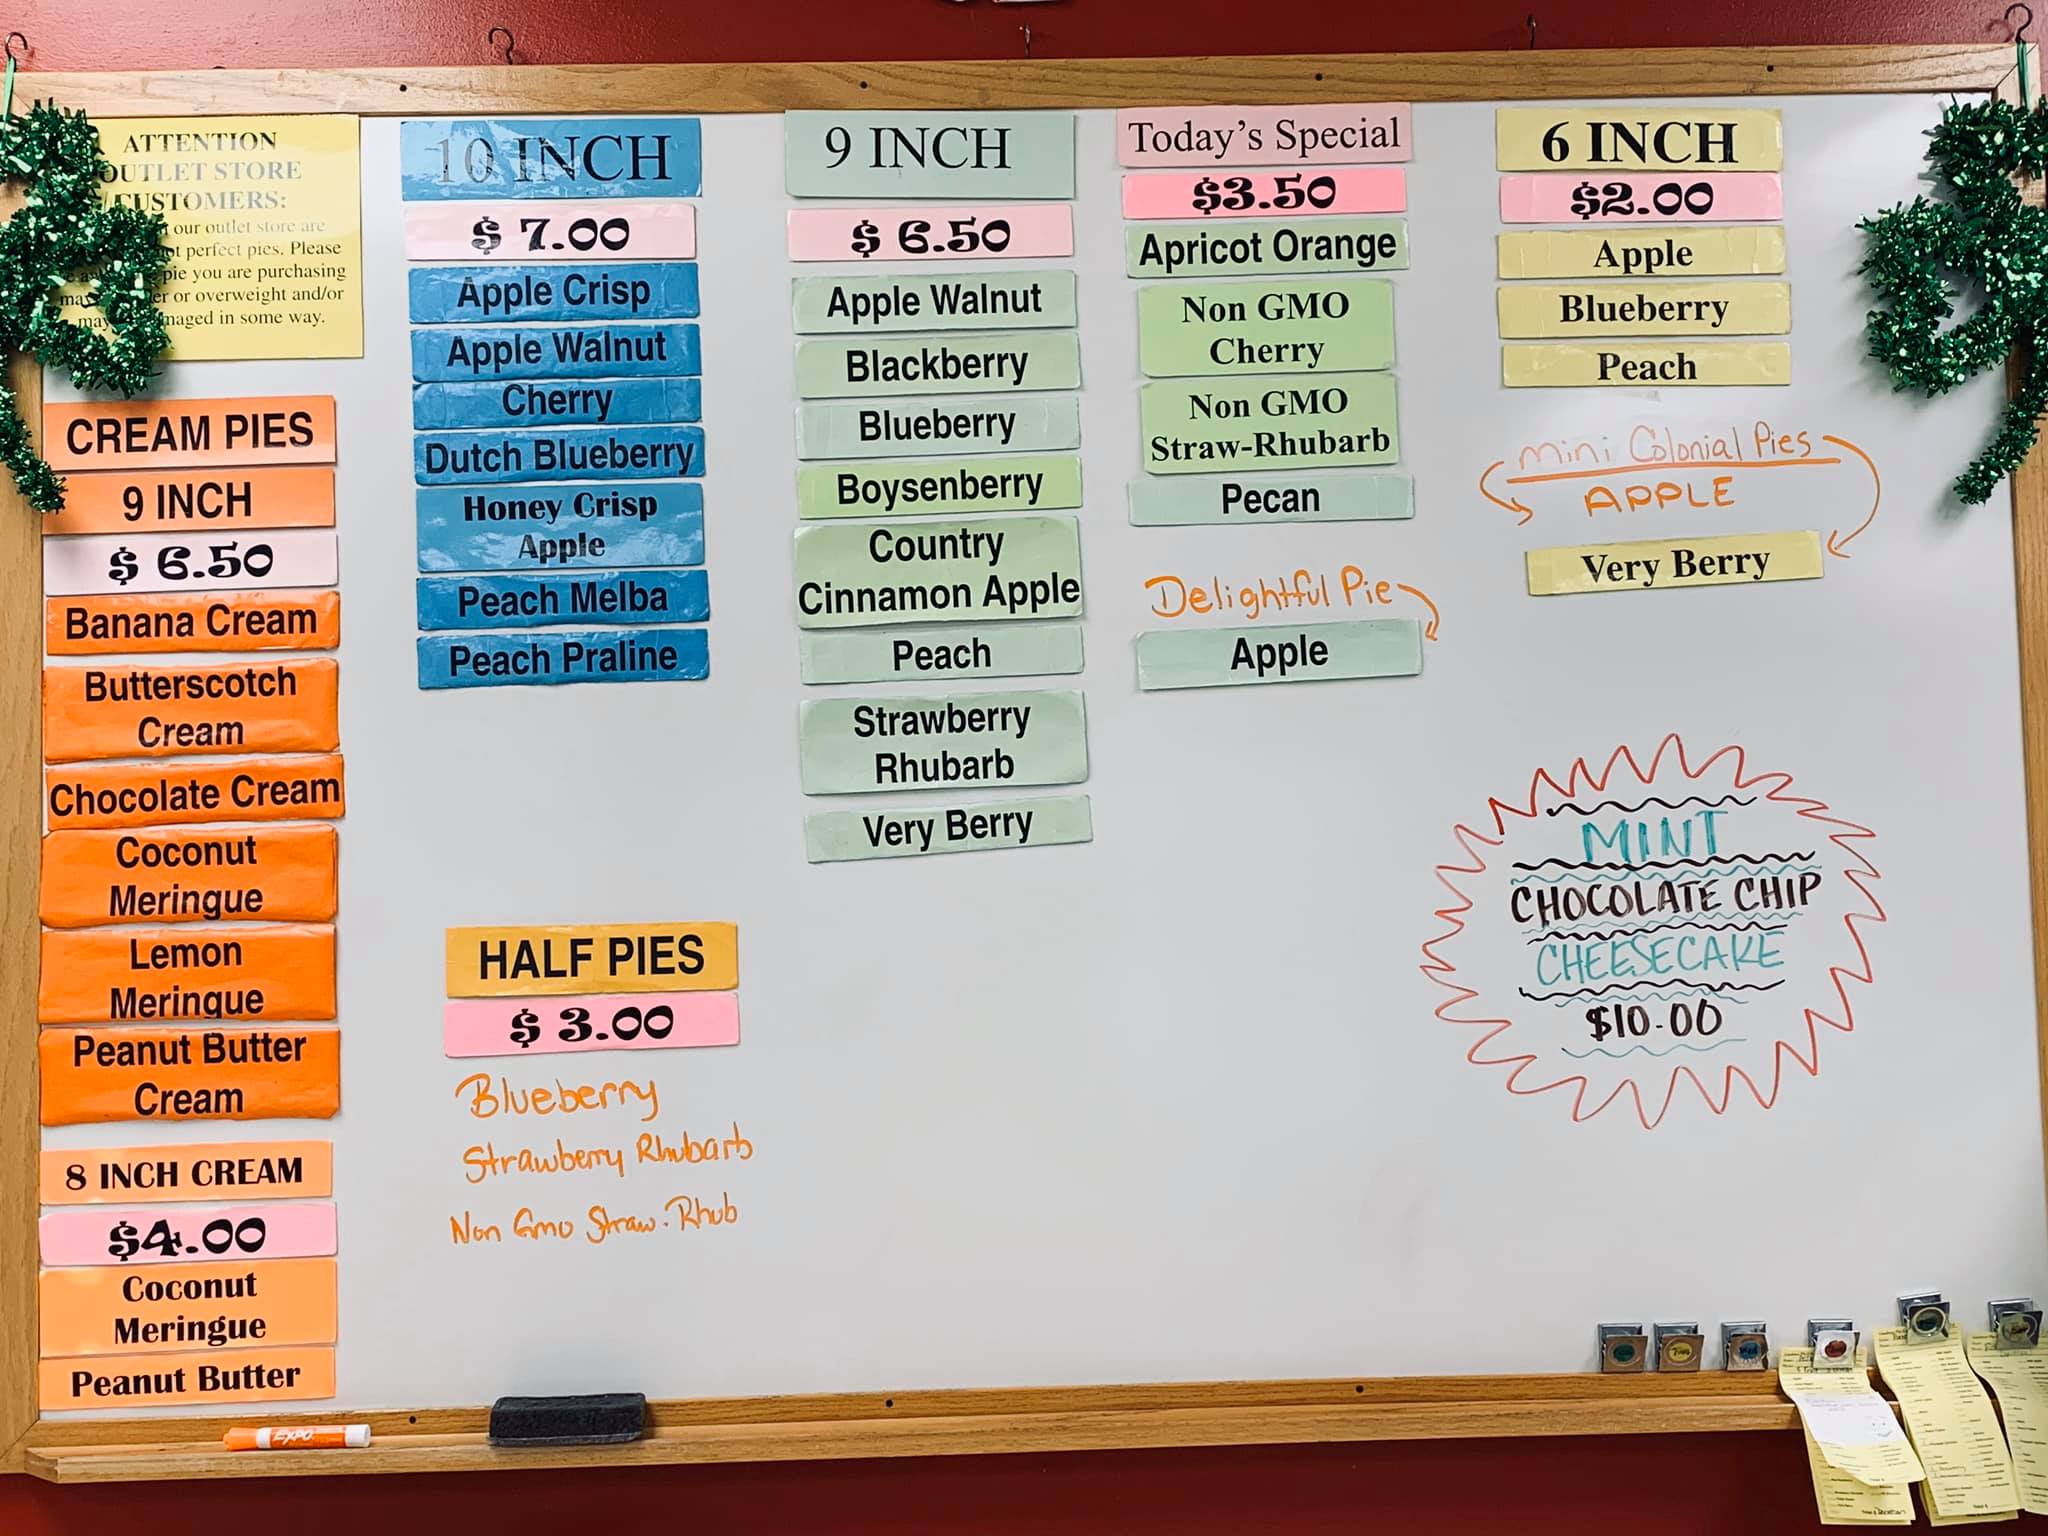 ATTENTION
OUTLET STORE
CUSTOMERS:
our outlet store are
not perfect pies. Please
pie you are purchasing
or overweight and/or
may in some way.
CREAM PIES
9 INCH
$ 6.50
Banana Cream
Butterscotch
Cream
Chocolate Cream
Coconut
Meringue
Lemon
Meringue
Peanut Butter
Cream
8 INCH CREAM
$4.00
Coconut
Meringue
Peanut Butter
10 INCH
$ 7.00
Apple Crisp
Apple Walnut
Cherry
Dutch Blueberry
Honey Crisp
Apple
Peach Melba
Peach Praline
HALF PIES
$ 3.00
Blueberry
Strawberry Rhubarb
Non Gmo Straw. Rhub
9 INCH
$ 6.50
Apple Walnut
Blackberry
Blueberry
Boysenberry
Country
Cinnamon Apple
Peach
Strawberry
Rhubarb
Very Berry
Today's Special
$3.50
Apricot Orange
Non GMO
Cherry
Non GMO
Straw-Rhubarb
Pecan
Delightful Pie
Apple
6 INCH
$2.00
Apple
Blueberry
Peach
mini Colonial Pies
APPLE
Very Berry
MINT
CHOCOLATE CHIP
CHEESECAKE
$10.00
EXPO